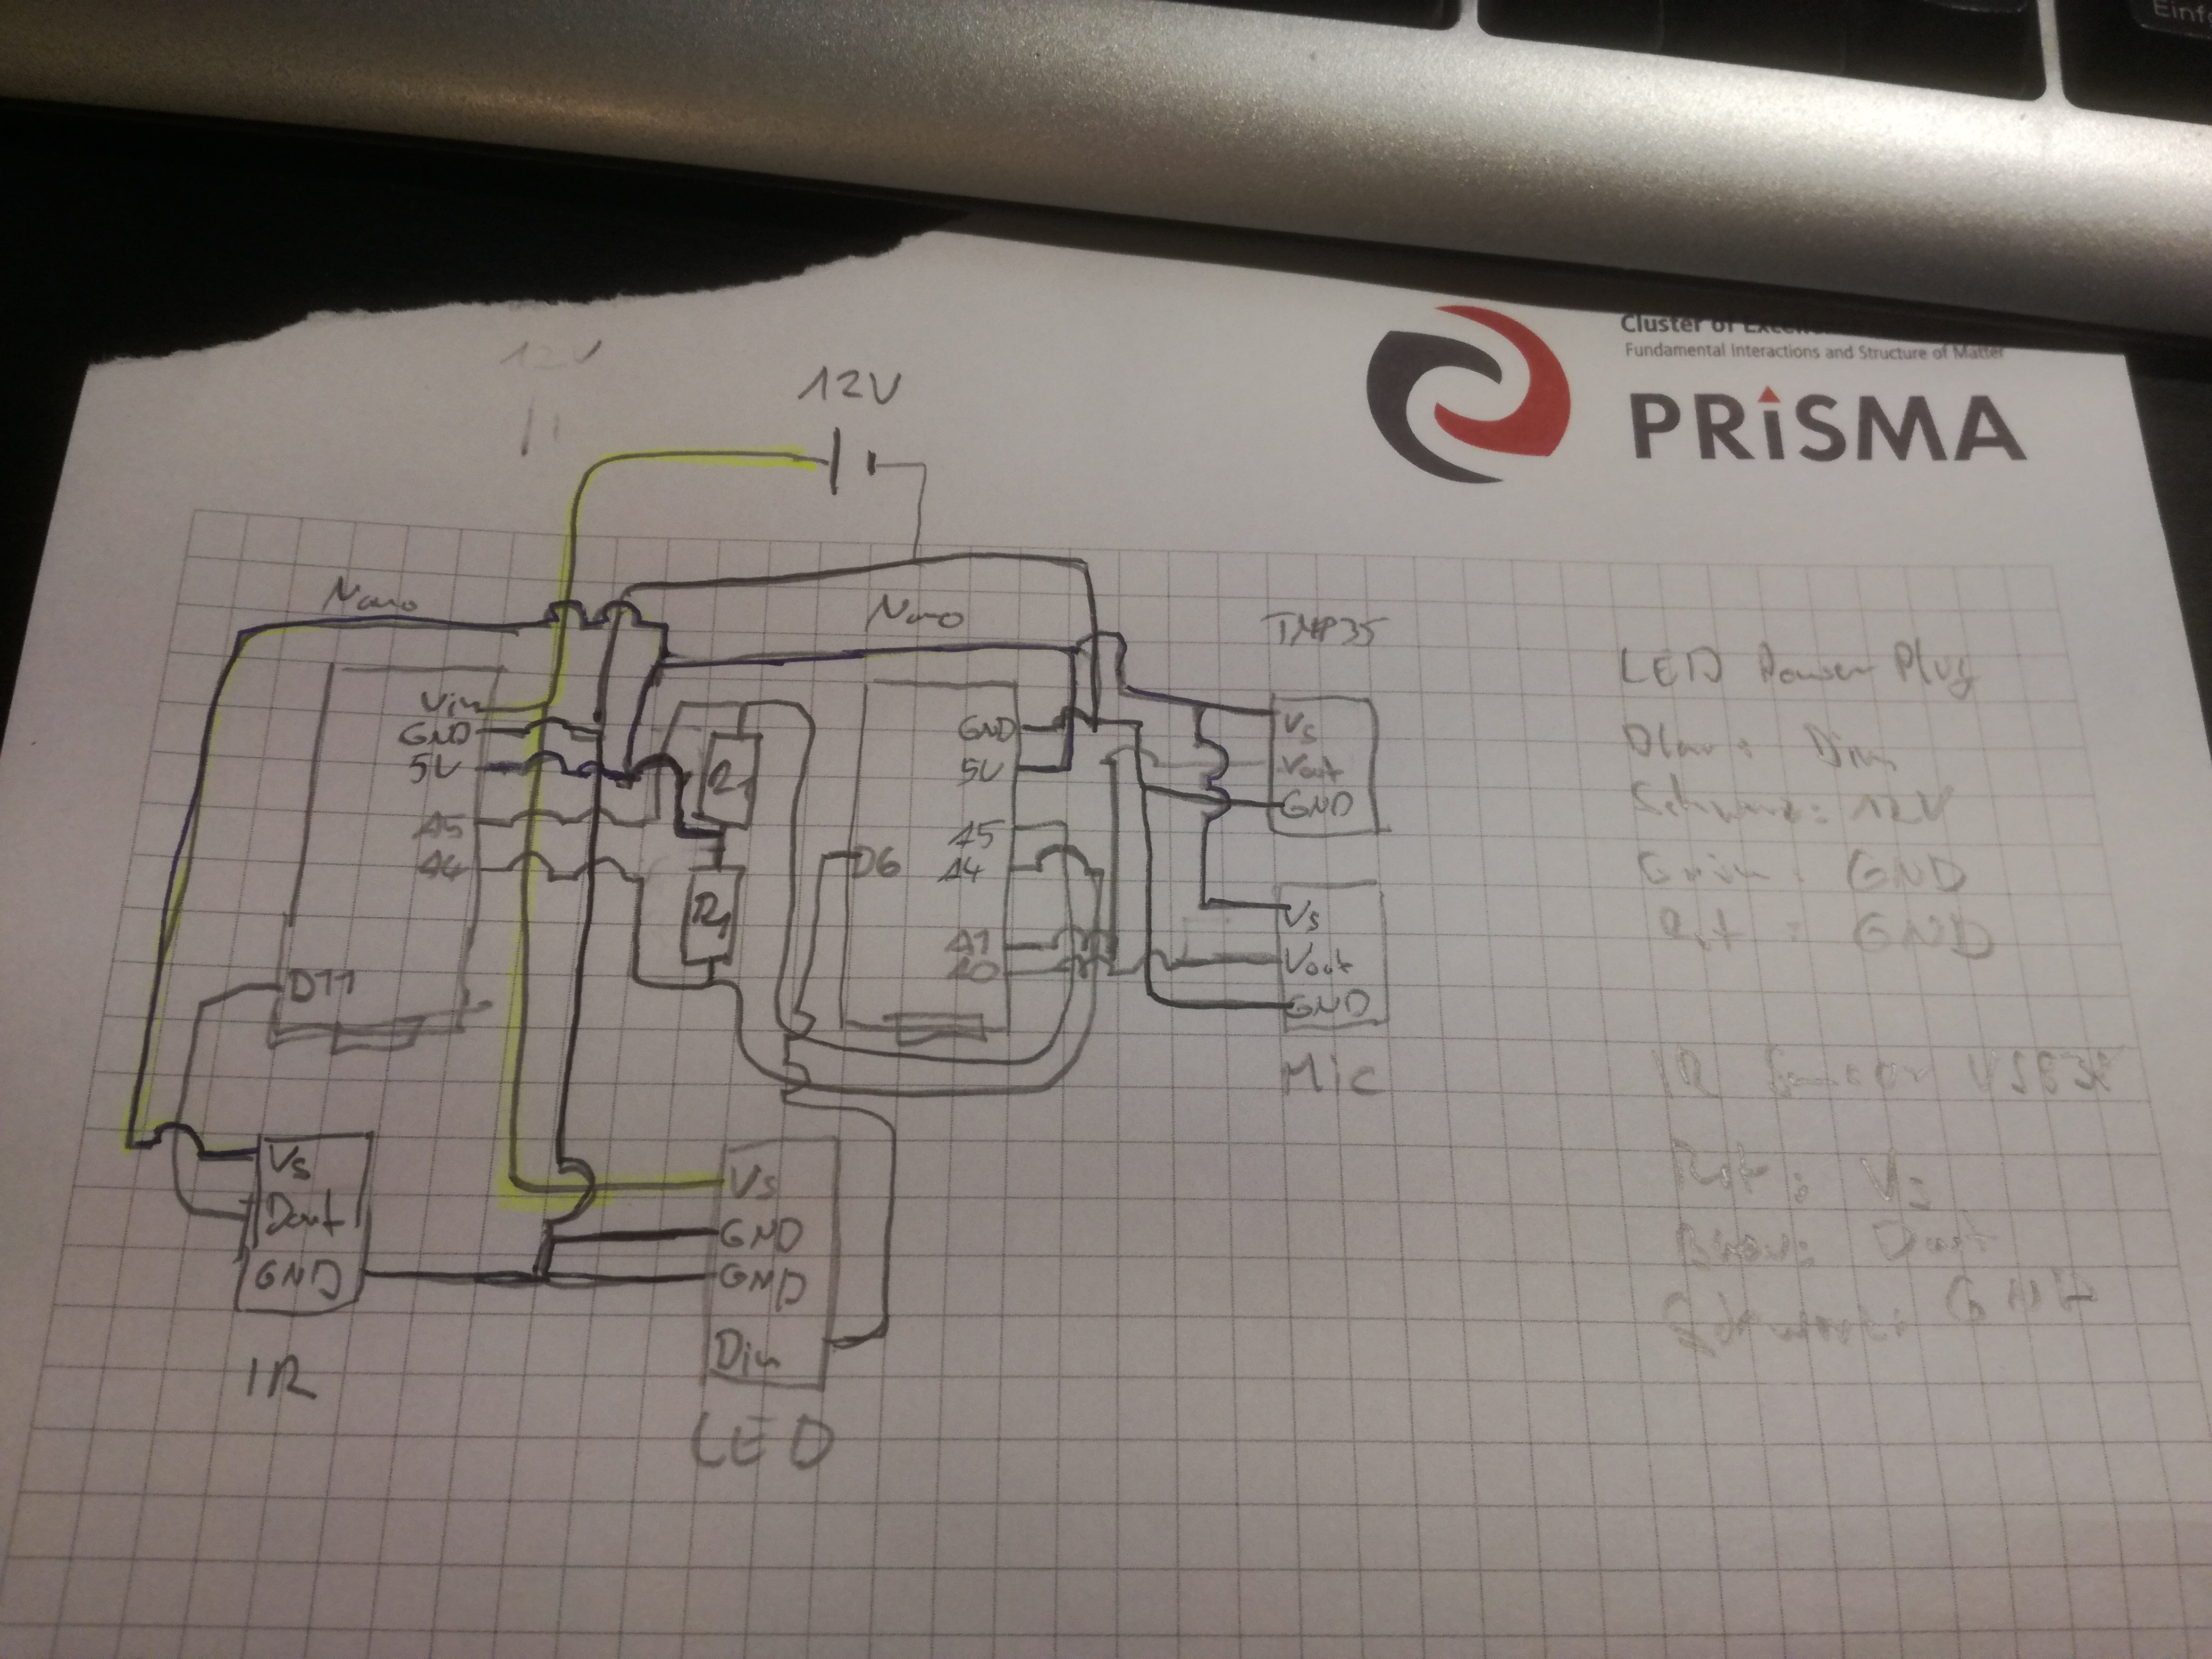 Einf
Cluster of
Fundamental Interactions and Structure of Matter
PRiSMA
12V
12V
Nano
Nano
TMP35
Vin
GND
5V
A5
A4
D11
R1
R1
D6
GND
5V
A5
A4
A1
A0
Vs
Vout
GND
Vs
Vout
GND
Mic
Vs
Dout
GND
IR
Vs
GND
GND
Din
LED
LED Power Plug
Blau: Din
Schwarz: 12V
Grün: GND
Rot: GND
IR Sensor
Rot: Vs
Braun: Dout
Schwarz: GND